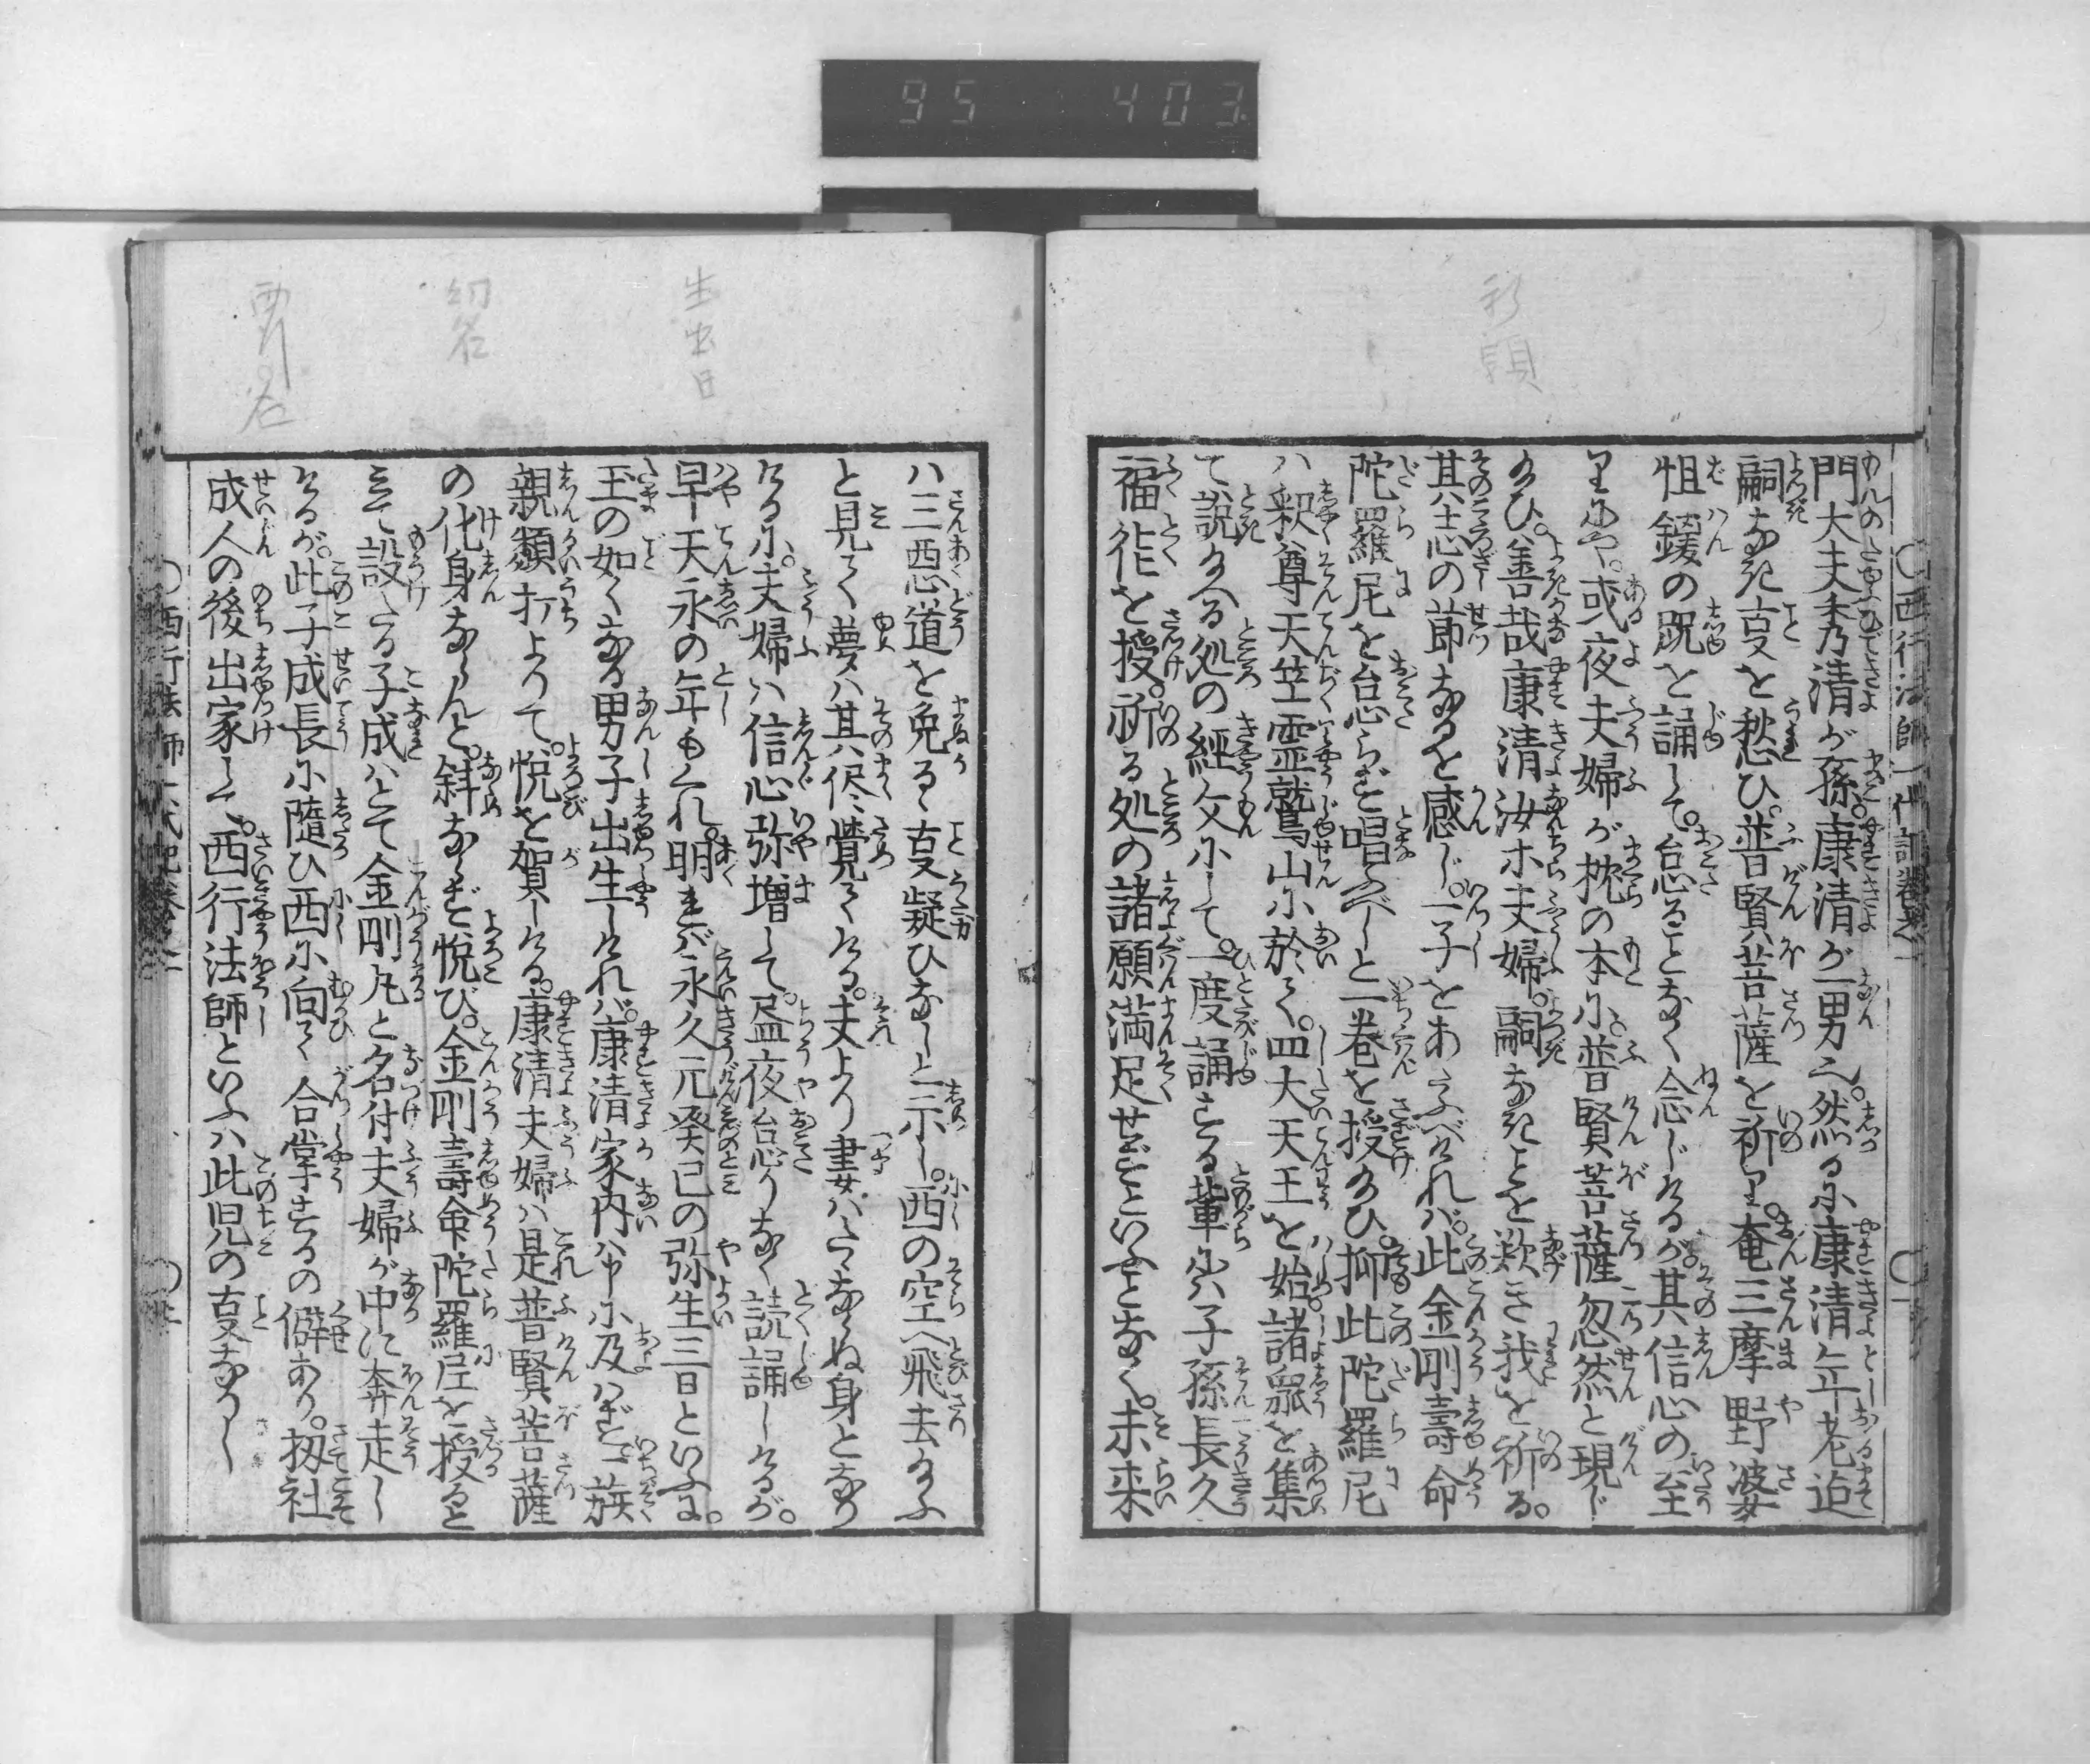 95 403
祈願
西行法師一代記巻之一
門大夫秀清が孫。康清が一男也。然るに康清年老迄
嗣なき叓を愁ひ。普賢菩薩を祈り。奄三摩野婆
怛鍐の呪を誦して。怠ることなく念じけるが。其信心の至
りにや。或夜夫婦が枕の本に。普賢菩薩忽然と現じ
給ひ。善哉康清汝ホ夫婦。嗣なきことを歎き我を祈る。
其志の莭なるを感じ。一子をあたふべければ。此金剛壽命
陀羅尼を怠らず唱ふべしと一巻を授給ひ。抑此陀羅尼
ハ釈尊天竺霊鷲山に於て。四大天王を始諸眾を集
て説給へる処の經文にして。一度誦する輩ハ子孫長久
福徳を授。祈る処の諸願満足せずといふことなく。未来
生出日
幻名
西行
ハ三悪道を免るゝ叓疑ひなしと示し。西の空へ飛去給ふ
と見て夢ハ其侭覚てける。夫より妻ハたゞならぬ身となり
けるに。夫婦ハ信心弥増して。昼夜怠りなく読誦しけるが。
早天永の年もくれ。明れば永久元癸巳の弥生三日といふに。
玉の如くなる男子出生しければ。康清家内ハ申に及ハず。一族
親類打よつて。悦を賀しける。康清夫婦ハ是普賢菩薩
の化身ならんと。斜ならず悦び。金剛壽命陀羅尼を授ると
て設たる子成ハとて金剛丸と名付夫婦が中に奔走し
けるが。此子成長に隨ひ西に向て合掌するの僻あり。扨社
成人の後出家して。西行法師といふハ此児の叓なりし
西行法師一代記巻之一